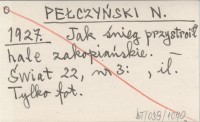 PEŁCZYŃSKI N.
1927. Jak śnieg przystroił
hale zakopiańskie. –
Świat 22, nr 3: , il.
Tylko fot.